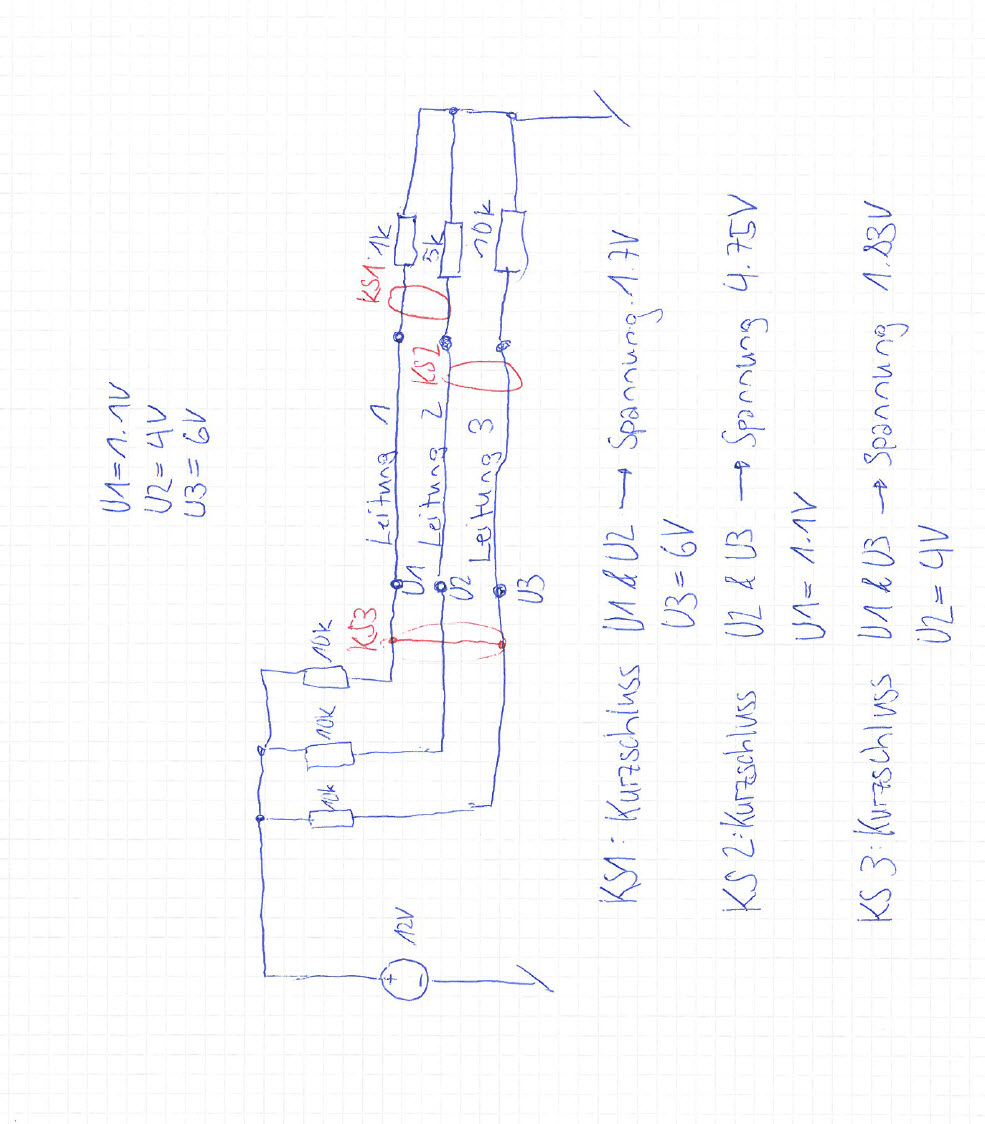 U1 = 1.1V
U2 = 4V
U3 = 6V
12V
10k
10k
10k
KS3
U1
U2
U3
Leitung 1
Leitung 2
Leitung 3
KS1
KS2
1k
5k
10k
KS1: Kurzschluss U1 & U2 → Spannung 1.7V
U3 = 6V
KS2: Kurzschluss U2 & U3 → Spannung 4.75V
U1 = 1.1V
KS3: Kurzschluss U1 & U3 → Spannung 1.83V
U2 = 4V